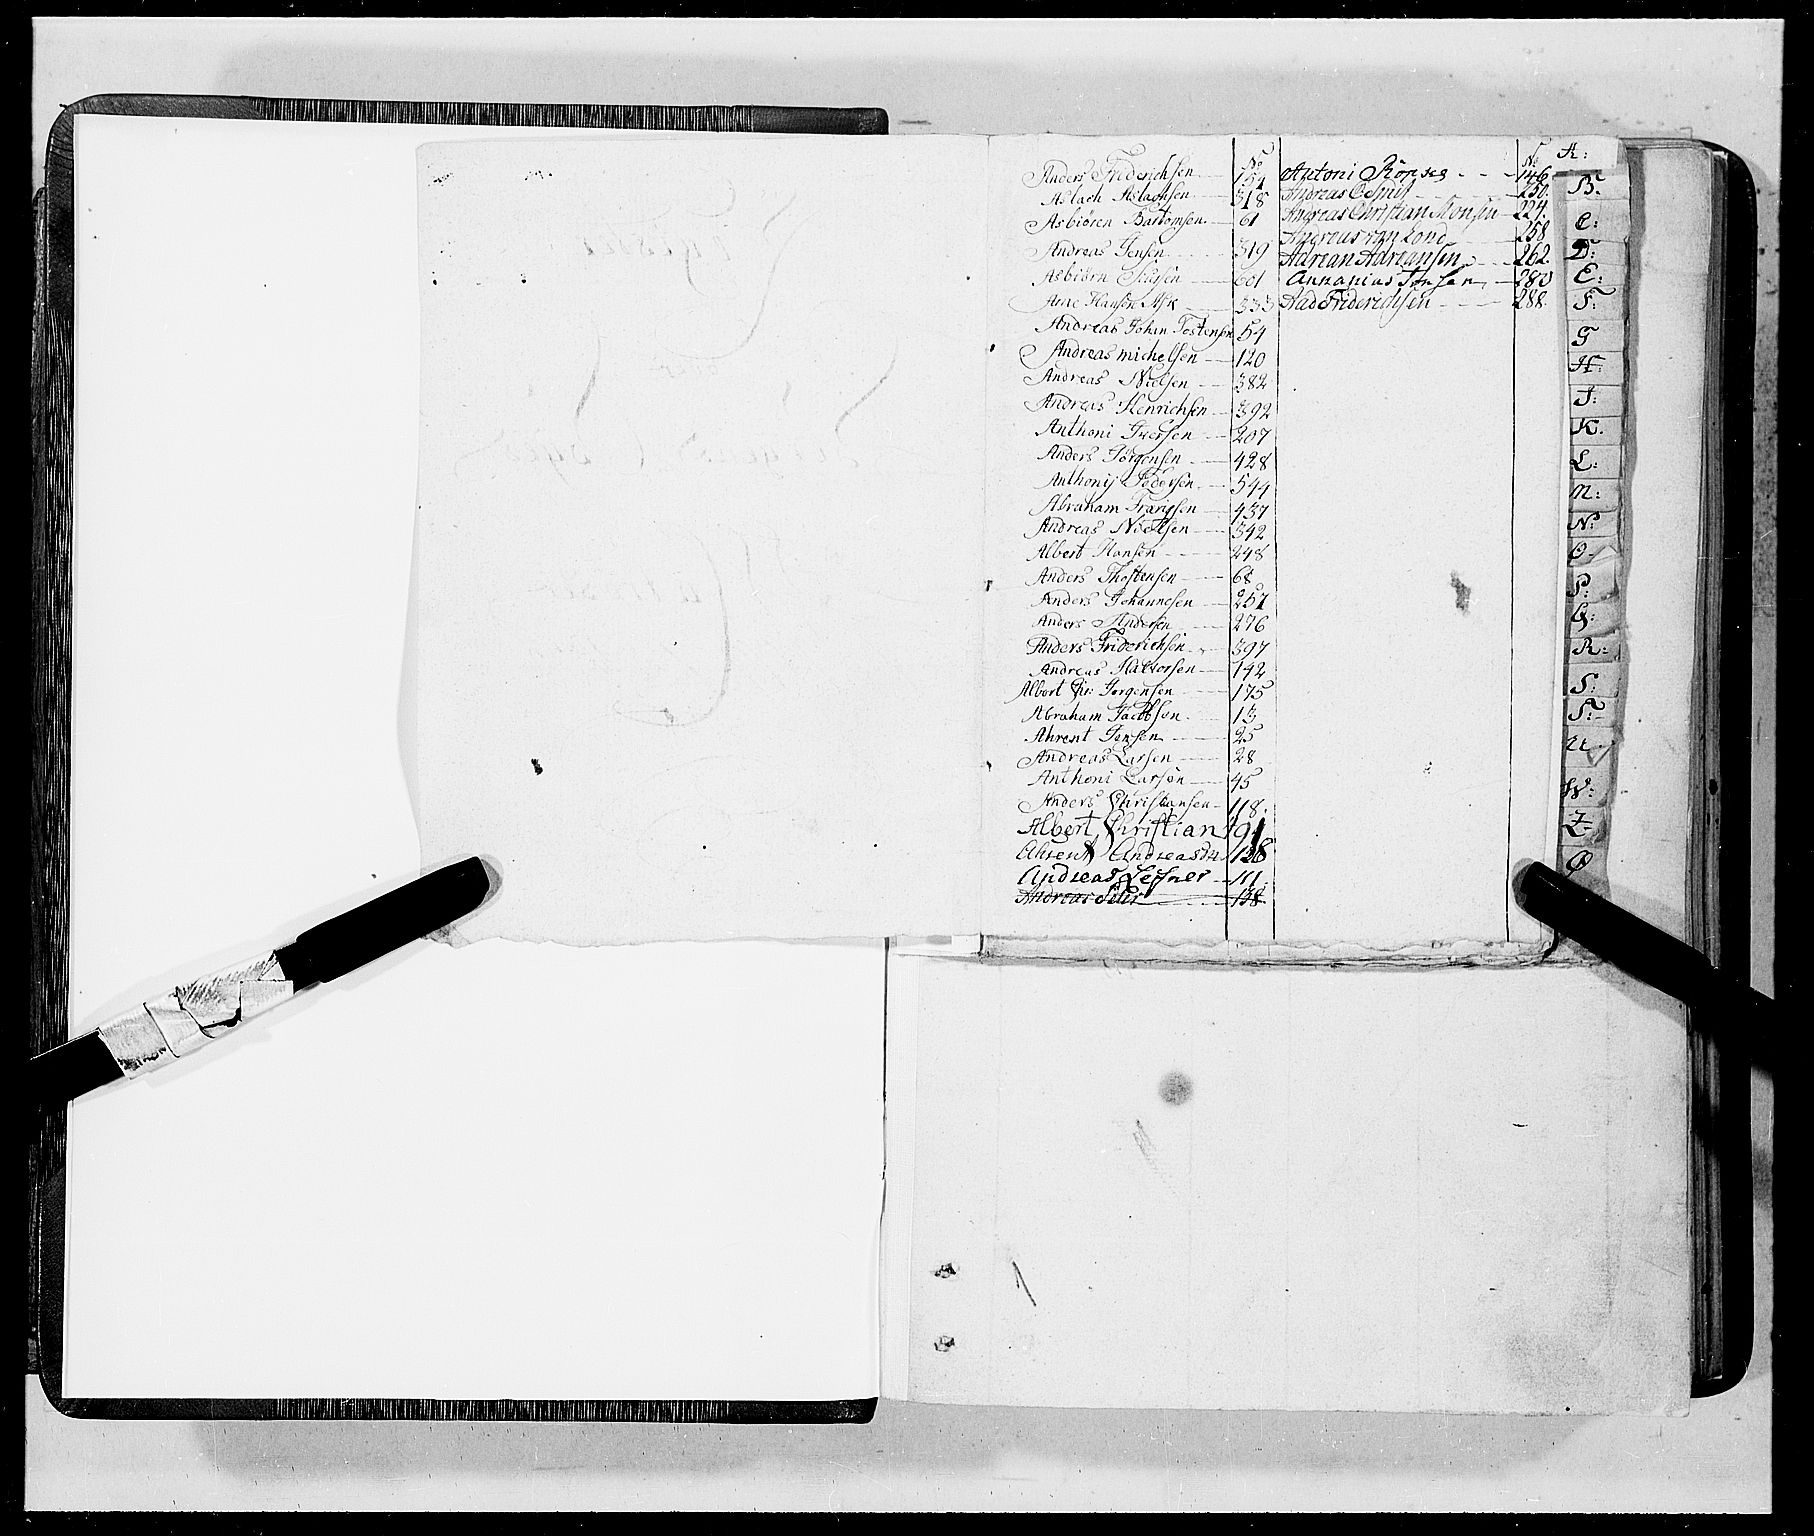 No
Anders Friderichsen 154
Aslach Aslachsen 318
Asbiören Bartomsen 61
Andreas Jensen 319
Asbiörn 601
Arne Hansen Ask 333
Andreas Johan Tostensen 54
Andreas michelsen 120
Andreas Nielsen 382
Andreas Henrichsen 392
Anthoni Iversen 207
Anders Jörgensen 428
Anthonij Pedersen 544
Abraham Frantzsen 437
Andreas Nielsen 342
Albert Hansen 248
Anders Thostensen 68
Anders Johannesen 257
Anders Andersen 276
Anders Friderichsen 397
Andreas Halvorsen 142
Albert Chr: Jørgensen 175
Abraham Jacobsen 13
Ahrent Jensen 25
Andreas Larsen 28
Anthoni Larsen 45
Anders Christiansen 118
Albert Christian 91
Ahrent Andreas 128
Andreas Lexner 111
Andreas 138
No
Antoni 146
Andreas 250
Andreas Christian Monsen 224
Andreas van Lond 258
Adrean Adreansen 262
Annanias Jonsen 280
Aad Friderichsen 288
A:
B:
C:
D:
E:
F:
G
H:
I:
K.
L:
M:
N:
O
P:
Q:
R:
S:
T:
U
W:
Z
Ø